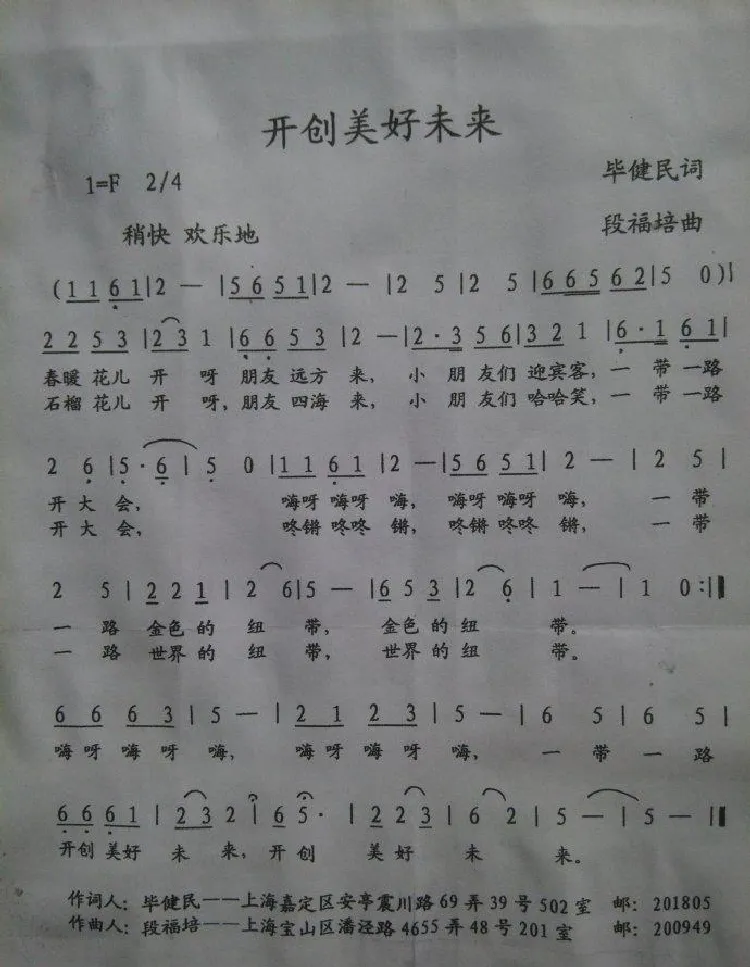 开创美好未来
1=F 2/4 毕健民词
稍快 欢乐地 段福培曲
(1 1 6 1|2 — |5 6 5 1|2 — |2 5 |2 5 |6 6 5 6 2|5 0)|
2 2 5 3 |2 3 1 |6 6 5 3 |2 —|2·3 5 6|3 2 1 |6·1 6 1|
春暖 花儿 开 呀 朋友 远方 来, 小 朋 友们 迎宾客, 一 带 一路
石榴 花儿 开 呀, 朋友 四海 来, 小 朋 友们 哈哈笑, 一 带 一路
2 6 |5·6 | 5 0 |1 1 6 1 |2 —|5 6 5 1| 2 — | 2 5 |
开 大 会, 嗨呀 嗨呀 嗨, 嗨呀 嗨呀 嗨, 一 带
开 大 会, 咚锵 咚咚 锵, 咚锵 咚咚 锵, 一 带
2 5 | 2 2 1 | 2 6|5 — |6 5 3 |2 6 | 1 — | 1 0 :||
一 路 金色 的 纽 带, 金色 的 纽 带。
一 路 世界 的 纽 带, 世界 的 纽 带。
6 6 6 3 | 5 — | 2 1 2 3 | 5 — | 6 5 | 6 5 |
嗨 呀 嗨 呀 嗨, 嗨 呀 嗨 呀 嗨, 一 带 一 路
6 6 6 1 | 2 3 2 | 6 5· | 2 2 3 | 6 2 | 5 — | 5 — ||
开创 美好 未 来, 开 创 美 好 未 来。
作词人: 毕健民——上海嘉定区安亭震川路 69 弄 39 号 502 室 邮: 201805
作曲人: 段福培——上海宝山区潘泾路 4655 弄 48 号 201 室 邮: 200949